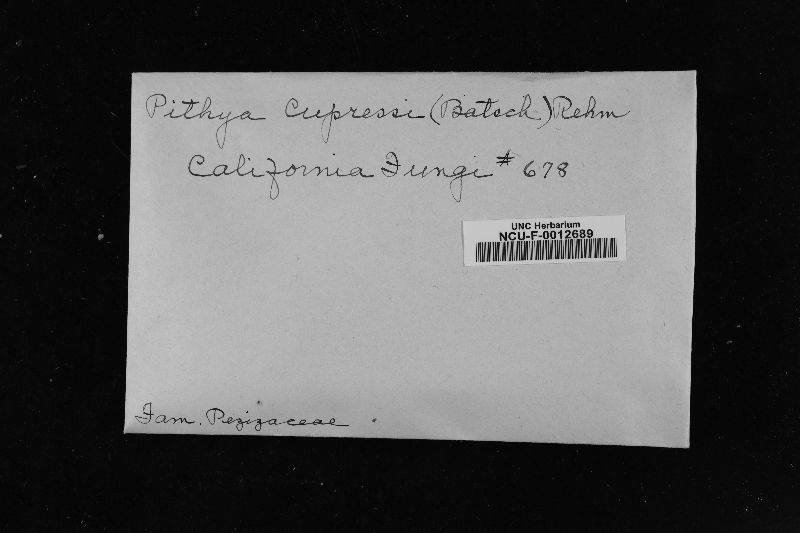 Pithya cupressi (Batsch) Rehm
California Fungi # 678
UNC Herbarium
NCU-F-0012689
Fam. Pezizaceae